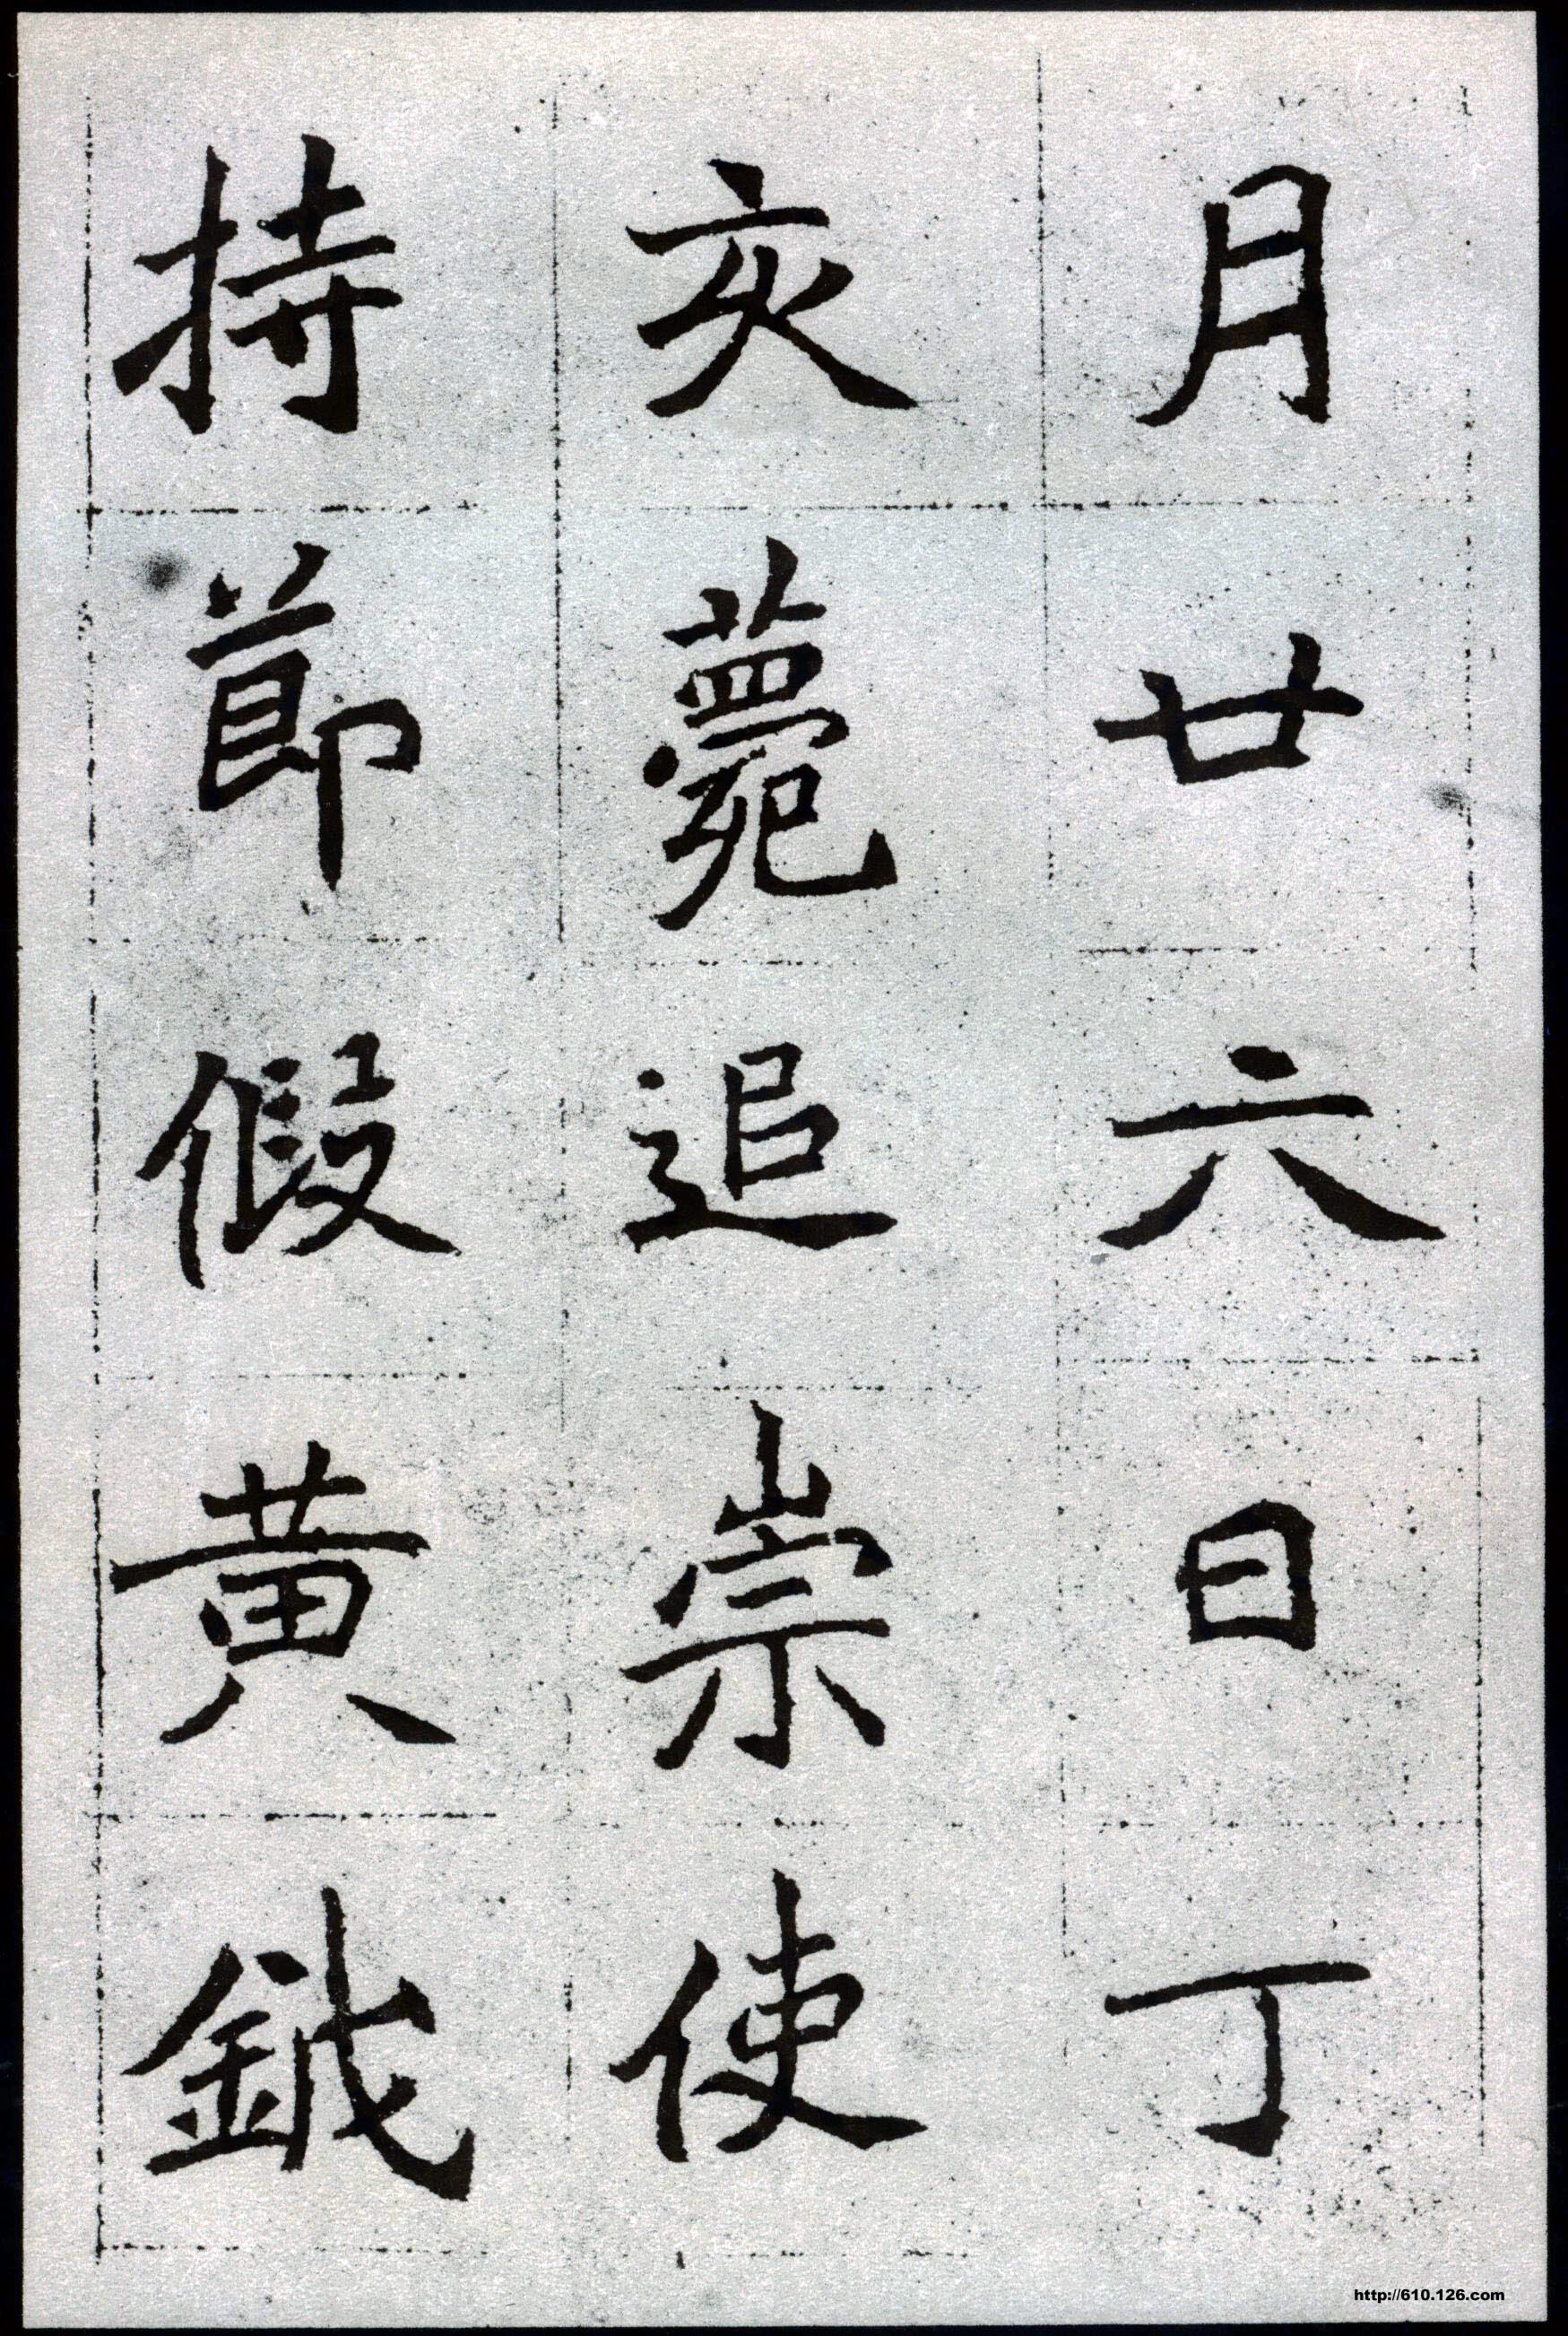 月廿六日丁
亥薨追崇使
持節假黃鉞
http://610.126.com